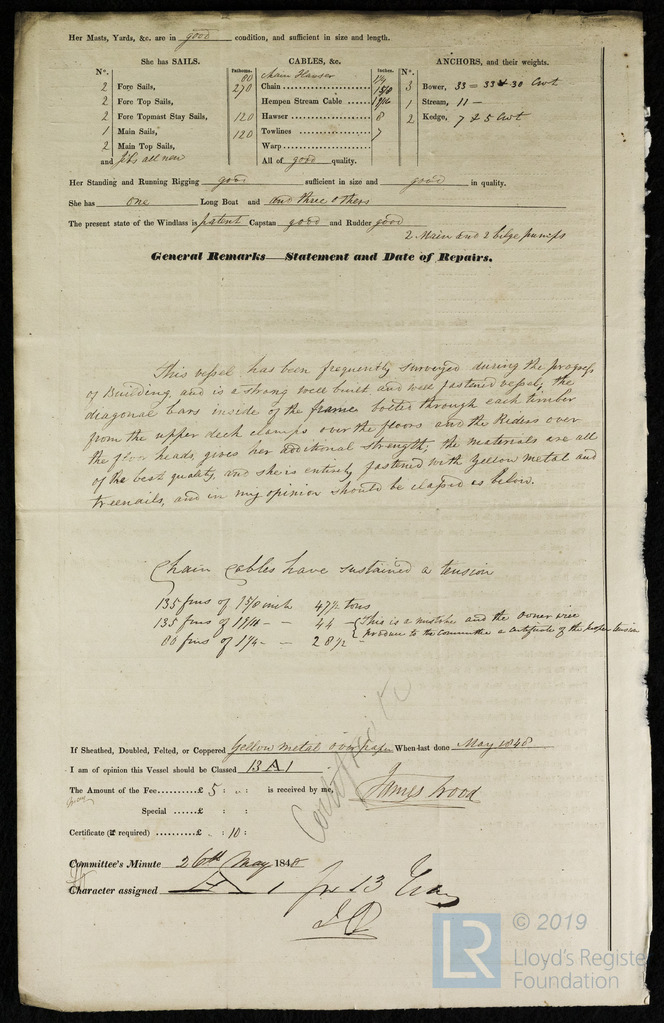 Her Masts, Yards, &c. are in good condition, and sufficient in size and length.
She has SAILS.
No.
2 Fore Sails,
2 Fore Top Sails,
2 Fore Topmast Stay Sails,
1 Main Sails,
2 Main Top Sails,
and Jibs all new
CABLES, &c.
Fathoms. Inches.
80 Chain Hawser 1 1/4
270 Chain 1 5/8
Hempen Stream Cable
120 Hawser 8
120 Towlines 7
Warp
All of good quality.
ANCHORS, and their weights.
No.
3 Bower, 33 = 33 & 30 Cwt
1 Stream, 11 —
2 Kedge, 7 & 5 Cwt
Her Standing and Running Rigging good sufficient in size and good in quality.
She has one Long Boat and and three others
The present state of the Windlass is patent Capstan good and Rudder good
2 Main and 2 bilge pumps
General Remarks—Statement and Date of Repairs.
This vessel has been frequently surveyed during the progress
of Building, and is a strong well built and well fastened vessel, the
diagonal bars inside of the frame bolted through each timber
from the upper deck clamps over the floors and the Riders over
the floor heads, gives her additional strength, the materials are all
of the best quality, and she is entirely fastened with Yellow metal and
treenails, and in my opinion should be classed as below.
Chain Cables have sustained a tension
135 fms of 1 5/8 inch 47 1/2 tons
135 fms of 1 9/16 - - 44 - { This is a mistake and the owner will
produce to the committee a certificate of the proper tension
80 fms of 1 1/4 - - 28 1/2
If Sheathed, Doubled, Felted, or Coppered Yellow metal over paper When last done May 1848
I am of opinion this Vessel should be Classed 13 A 1
The Amount of the Fee £ 5 : - : is received by me,
James Wood
Special £ : :
Certificate (if required) £ - : 10 :
Certificate
Committee's Minute 26th May 1848
Character assigned A 1 for 13 Years
LR
© 2019
Lloyd's Register
Foundation